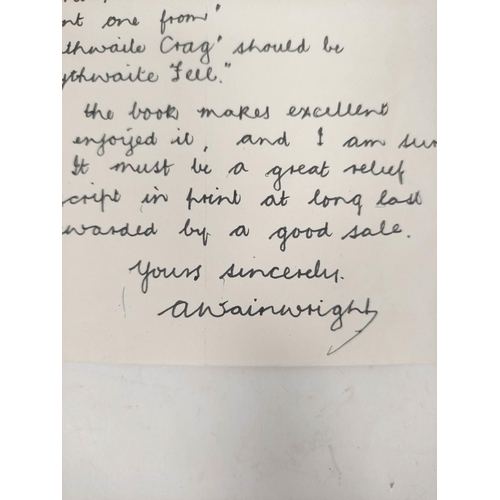 nt one from"
thwaite Crag" should be
ythwaite Fell."
the book makes excellent
enjoyed it, and I am sur
It must be a great relief
cript in print at long last
warded by a good sale.
Yours sincerely.
AWainwright